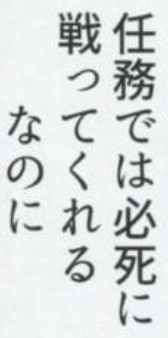 任務では必死に
戦ってくれる
なのに